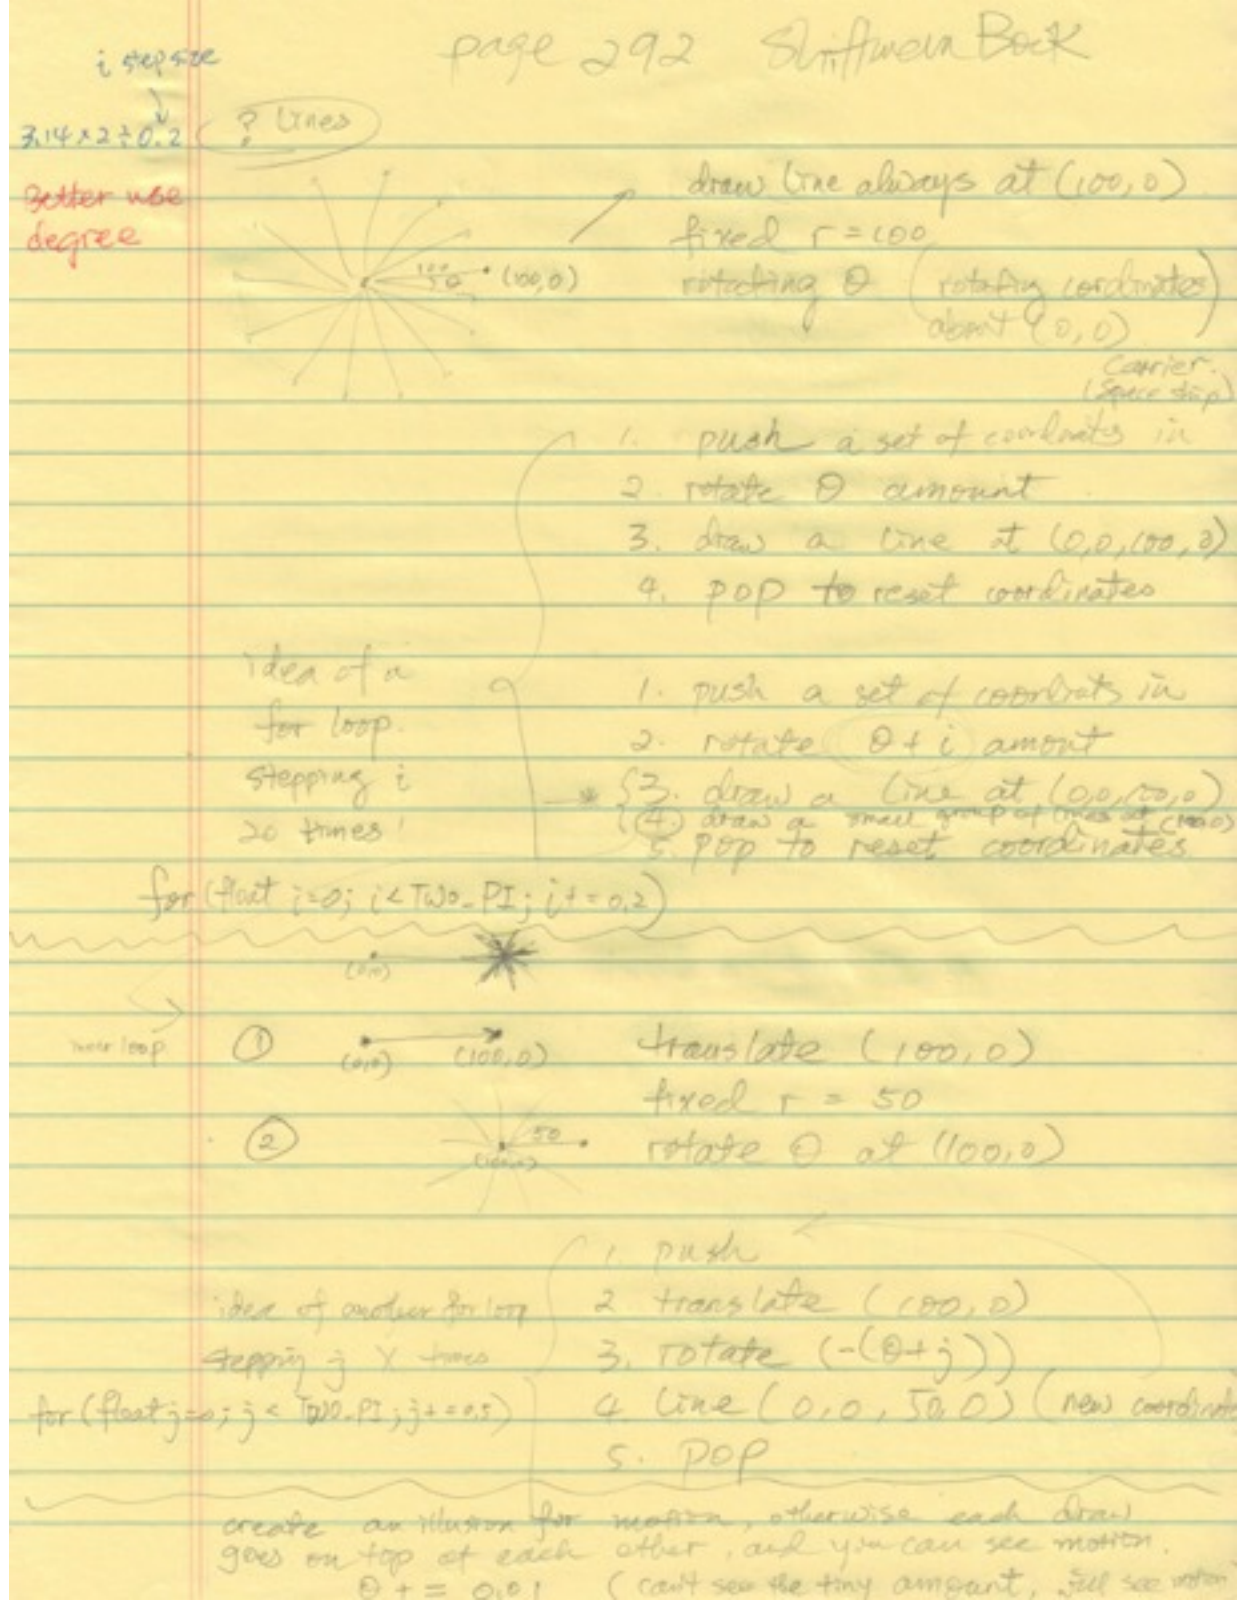 page 292 Shiffman Book
i step size
3.14 x 2 ÷ 0.2
? lines
Better use
degree
draw line always at (100, 0)
fixed r = 100
100
50
(100, 0)
rotating θ (rotating coordinates
about (0, 0)
Carrier.
(Space ship)
1. push a set of coordinates in
2. rotate θ amount
3. draw a line at (0,0,100,0)
4. pop to reset coordinates
idea of a
for loop.
stepping i
20 times!
1. push a set of coordinats in
2. rotate θ + i amout
3. draw a line at (0,0,100,0)
4. draw a small group of lines at (100,0)
5. pop to reset coordinates
for (float i=0; i < TWO_PI; i += 0.2)
(0,0)
inner loop
1
(0,0) (100,0)
translate (100, 0)
fixed r = 50
2
50
(100,0)
rotate θ at (100, 0)
1. push
idea of another for loop
2. translate (100, 0)
stepping j Y times
3. rotate (-(θ+j))
for (float j=0; j < TWO_PI; j += 0.5)
4 line (0, 0, 50, 0) (new coordinate
5. pop
create an illusion for motion, otherwise each draw
goes on top of each other, and you can see motion.
θ + = 0.01 (can't see the tiny amount, see motion